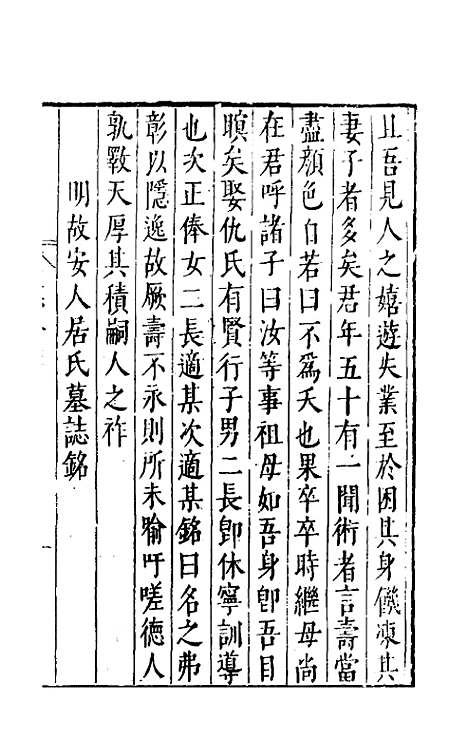 且吾見人之嬉遊失業至於困其身饑凍其
妻子者多矣君年五十有一聞術者言壽當
盡顏色自若曰不爲夭也果卒卒時繼母尚
在君呼諸子曰汝等事祖母如吾身卽吾目
瞑矣娶仇氏有賢行子男二長卽休寧訓導
也次正俸女二長適某次適某銘曰名之弗
彰以隱逸故厥壽不永則所未喻吁嗟德人
孰斁天厚其積嗣人之祚
明故安人居氏墓誌銘